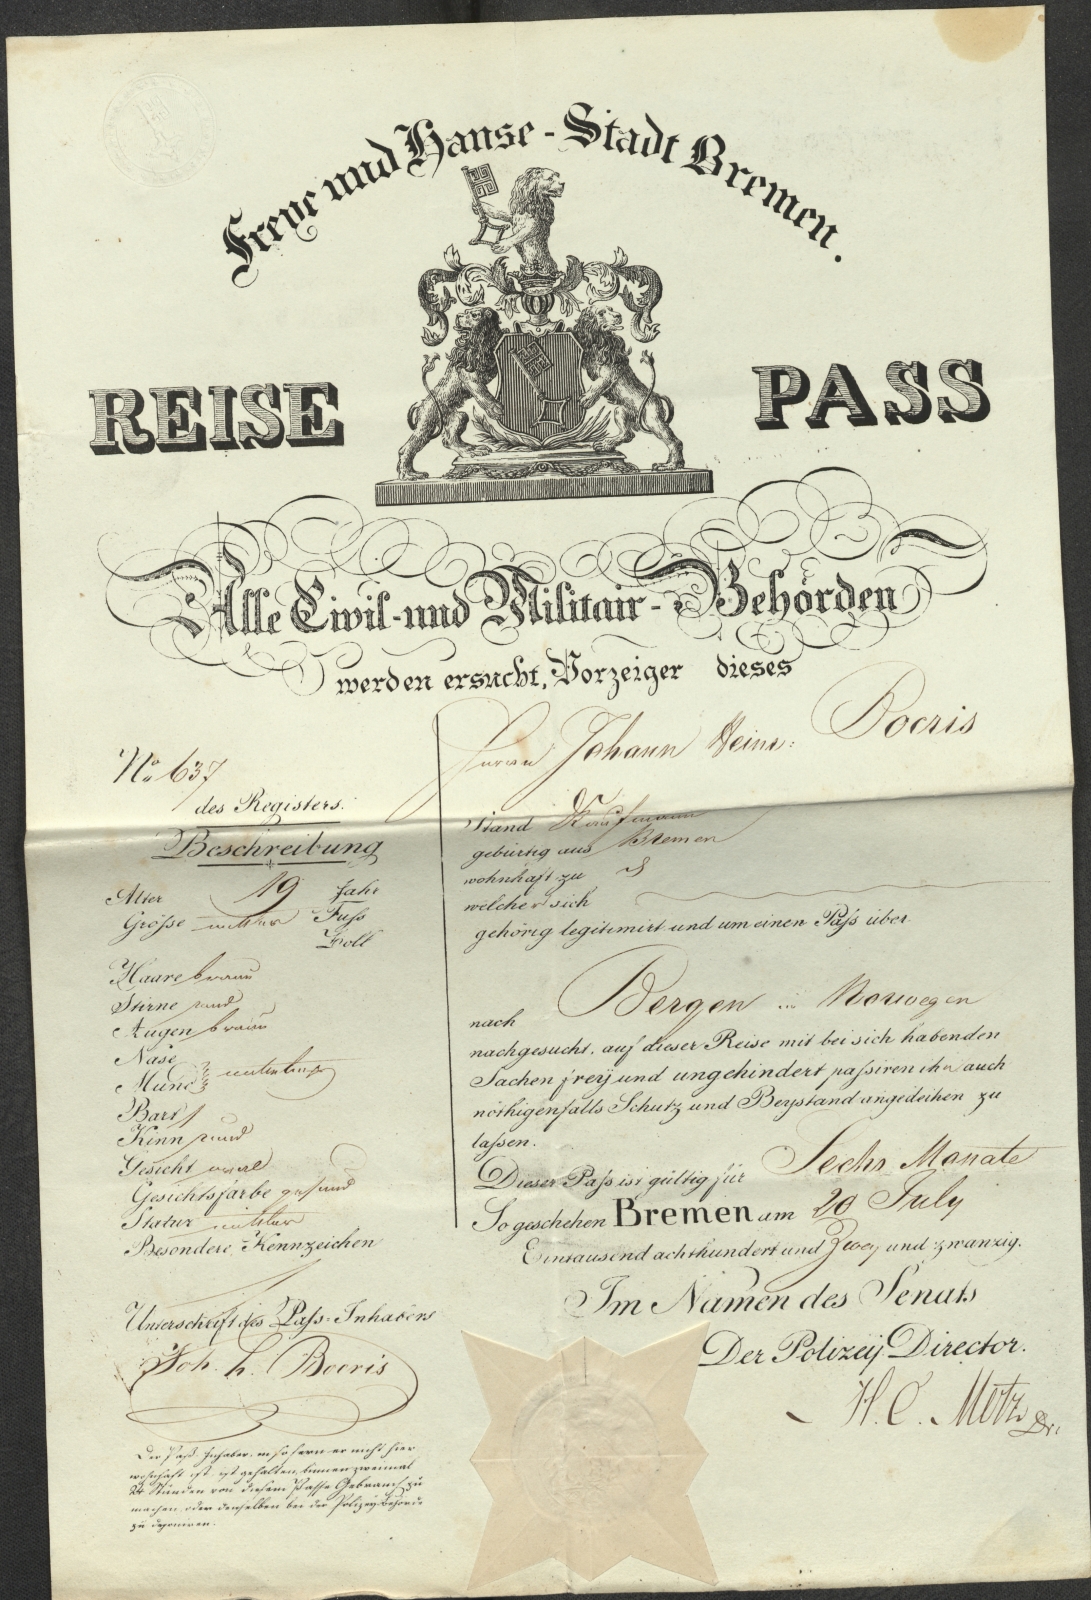 Freye und Hanse-Stadt Bremen.
REISE PASS
Alle Civil- und Militair-Behörden
werden ersucht, Vorzeiger dieses
Herrn Johann Heinr: Bocris
No 637
des Registers.
Beschreibung
Alter 19 Jahr
Grösse mittler Fuss
Zoll
Haare braun
Stirne rund
Augen braun
Nase
Mund
Bart /
Kinn rund
Gesicht oval
Gesichtsfarbe gesund
Statur mittler
Besondere Kennzeichen
Unterschrift des Pass-Inhabers
Joh. H. Bocris
Der Paß-Inhaber, in so fern er nicht hier
wohnhaft ist, ist gehalten, binnen zweimal
24 Stunden von diesem Passe Gebrauch zu
machen oder denselben bei der Polizeybehörde
zu deponiren.
Stand Kaufmann
gebürtig aus Bremen
wohnhaft zu
welcher sich
gehörig legitimirt und um einen Paſs über
nach Bergen in Norwegen
nachgesucht, auf dieser Reise mit bei sich habenden
Sachen frey und ungehindert paſsiren ihn auch
nöthigenfalls Schutz und Beystand angedeihen zu
laſsen.
Dieser Paſs ist gültig für Sechs Monate
So geschehen Bremen am 20 July
Eintausend achthundert und Zwey und zwanzig.
Im Namen des Senats
Der Polizey Director.
H. C. Motz Dr.